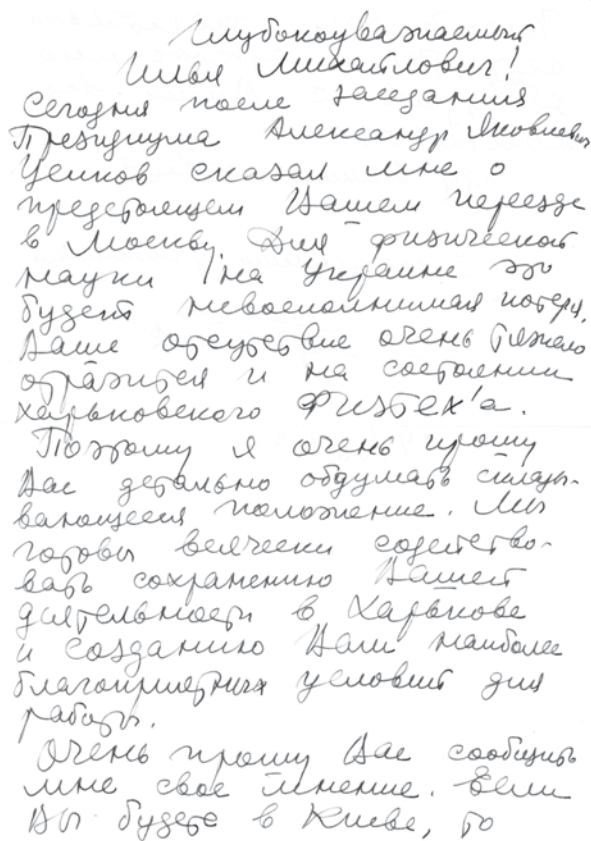 Глубокоуважаемый
Илья Михайлович!
Сегодня после заседания
Президиума Александр Яковлевич
Усиков сказал мне о
предстоящем Вашем переезде
в Москву. Для физической
науки на Украине это
будет невосполнимая потеря.
Ваше отсутствие очень тяжело
отразится и на состоянии
Харьковского Физтех'а.
Поэтому я очень прошу
Вас детально обдумать склады-
вающееся положение. Мы
готовы всячески содейство-
вать сохранению Вашей
деятельности в Харькове
и созданию Вам наиболее
благоприятных условий для
работы.
Очень прошу Вас сообщить
мне свое мнение. Если
Вы будете в Киеве, то